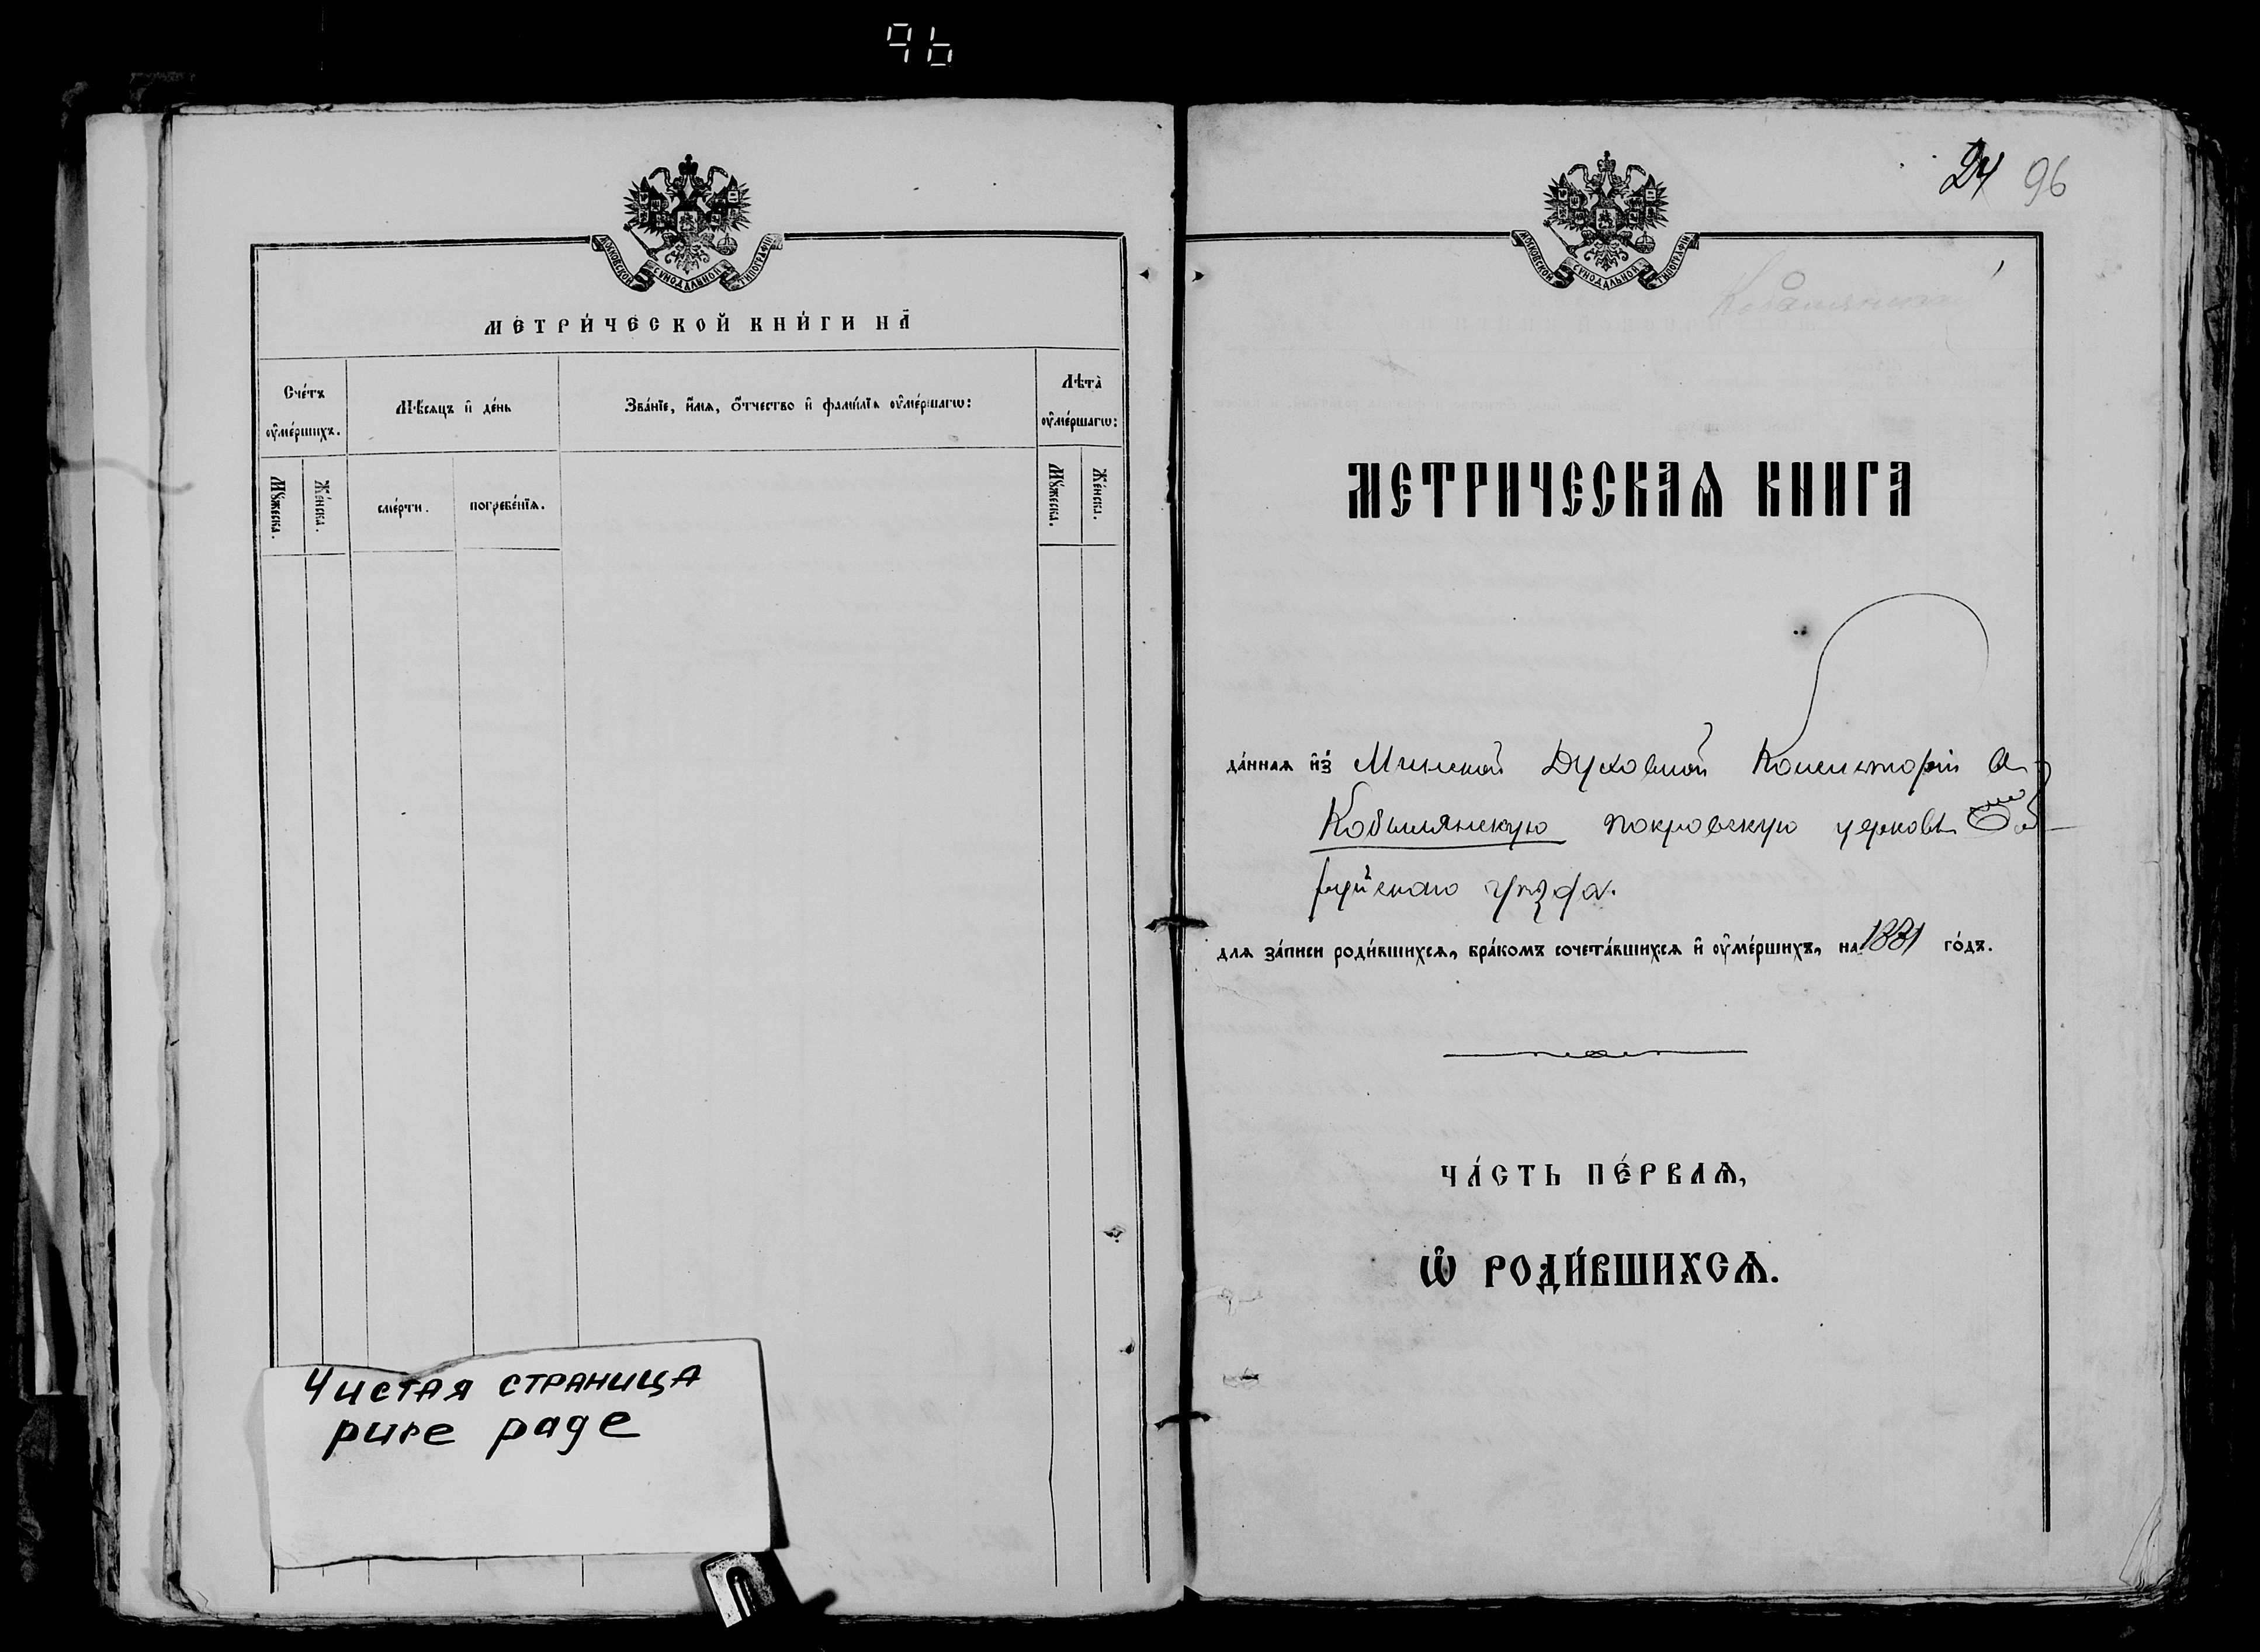 96
МОСКОВСКОЙ СУНОДАЛЬНОЙ ТИПОГРАФІИ
МЕТРИ́ЧЕСКОЙ КНИ́ГИ НА̀
Сче́тъ ᲂу҆ме́ршихъ.
Мѣ́сяцъ и҆ де́нь
Зва́нїе, и҆́мѧ, ѻ҆́тчество и҆ фами́лїѧ ᲂу҆ме́ршагѡ:
Лѣта̀ ᲂу҆ме́ршагѡ:
Мꙋ́жеска.
Же́нска.
сме́рти.
погребе́нїѧ.
Мꙋ́жеска.
Же́нска.
Чистая страница
pure page
24 96
МОСКОВСКОЙ СУНОДАЛЬНОЙ ТИПОГРАФІИ
МЕТРИЧЕСКАѦ КНИГА
да́ннаѧ и҆з̾ Минской Духовной Консисторіи въ
Кобылянскую покровскую церковь Боб-
руйскаго уѣзда.
для за́писи роди́вшихсѧ, бра́комъ сочета́вшихсѧ и҆ ᲂу҆ме́ршихъ, на 1881 го́дъ.
ЧА́СТЬ ПЕ́РВАѦ,
Ѽ РОДИ́ВШИХСѦ.